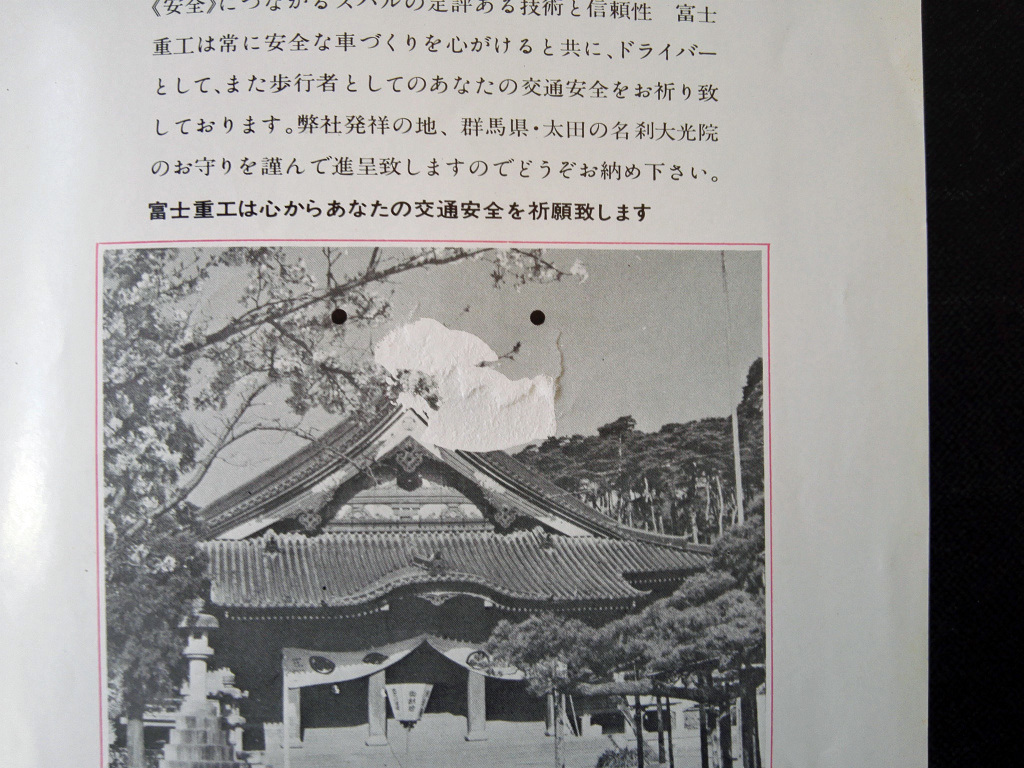 《安全》につながるスバルの定評ある技術と信頼性　富士
重工は常に安全な車づくりを心がけると共に、ドライバー
として、また歩行者としてのあなたの交通安全をお祈り致
しております。弊社発祥の地、群馬県・太田の名刹大光院
のお守りを謹んで進呈致しますのでどうぞお納め下さい。
富士重工は心からあなたの交通安全を祈願致します